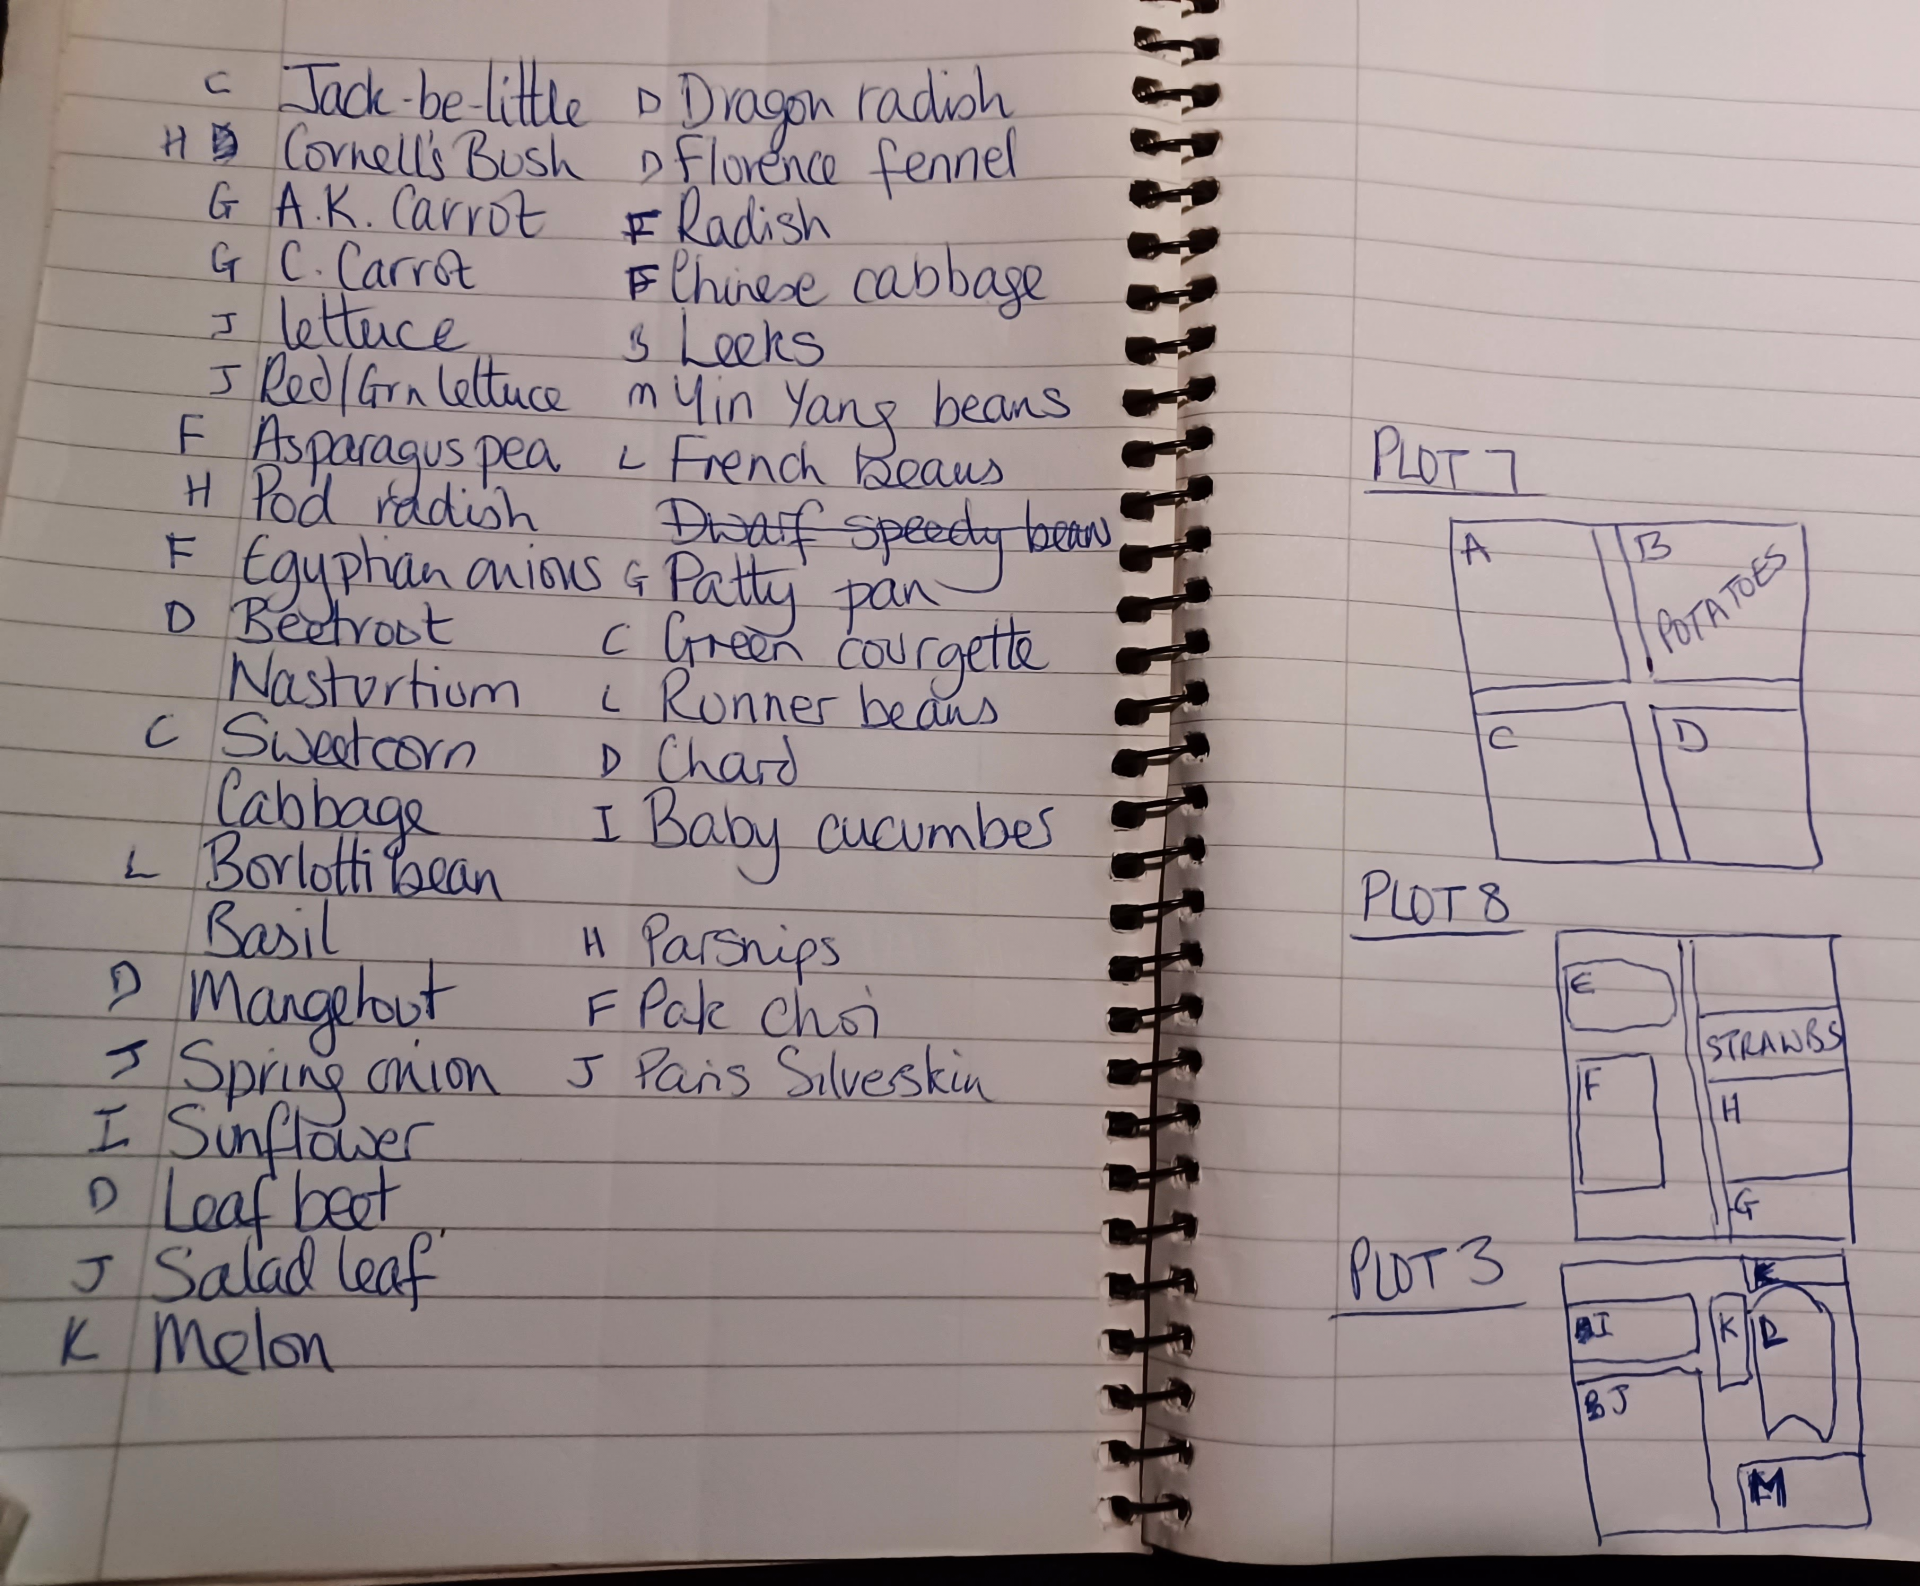 C Jack-be-little
H Cornell's Bush
G A.K. Carrot
G C. Carrot
J lettuce
J Red/Grn lettuce
F Asparagus pea
H Pod radish
F Egyptian onions
D Beetroot
Nasturtium
C Sweetcorn
Cabbage
L Borlotti bean
Basil
D Mangetout
J Spring onion
I Sunflower
D Leaf beet
J Salad leaf
K Melon
D Dragon radish
D Florence fennel
F Radish
F Chinese cabbage
B Leeks
M Yin Yang beans
L French beans
Dwarf speedy bean
G Patty pan
C Green courgette
L Runner beans
D Chard
I Baby cucumbes
H Parsnips
F Pak choi
J Paris Silverskin
PLOT 7
A
B
POTATOES
C
D
PLOT 8
E
STRAWBS
F
H
G
PLOT 3
I
K
L
J
M